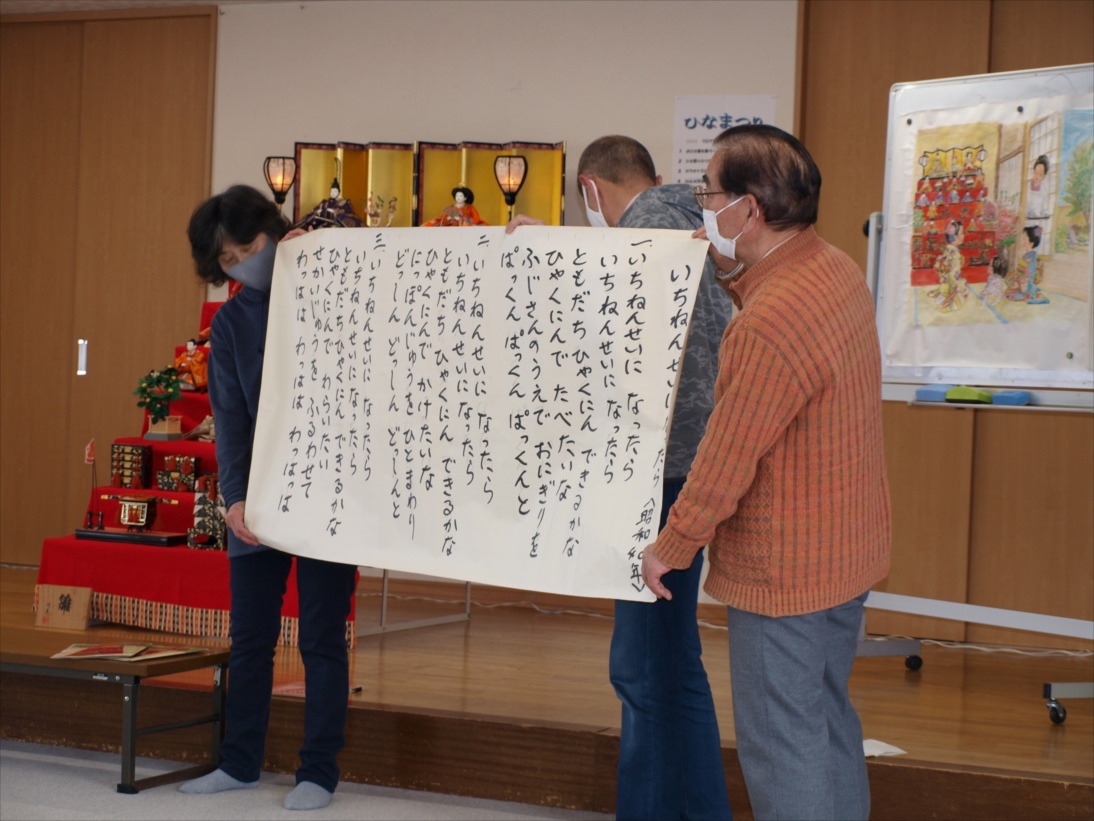 ひなまつり
いちねんせいに たら 〈昭和40年〉
一、いちねんせいに なったら
いちねんせいに なったら
ともだちひゃくにん できるかな
ひゃくにんで たべたいな
ふじさんのうえで おにぎりを
ぱっくん ぱっくん ぱっくんと
二、いちねんせいに なったら
いちねんせいに なったら
ともだち ひゃくにん できるかな
ひゃくにんで かけたいな
にっぽんじゅうを ひとまわり
どっしん どっしん どっしんと
三、いちねんせいに なったら
いちねんせいに なったら
ともだちひゃくにん できるかな
ひゃくにんで わらいたい
せかいじゅうを ふるわせて
わっはは わっはは わっはっは
雛